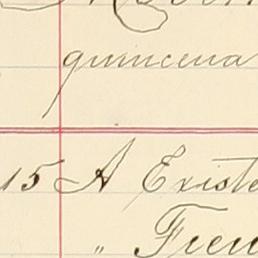 quincena
15 A Existe
" Fien